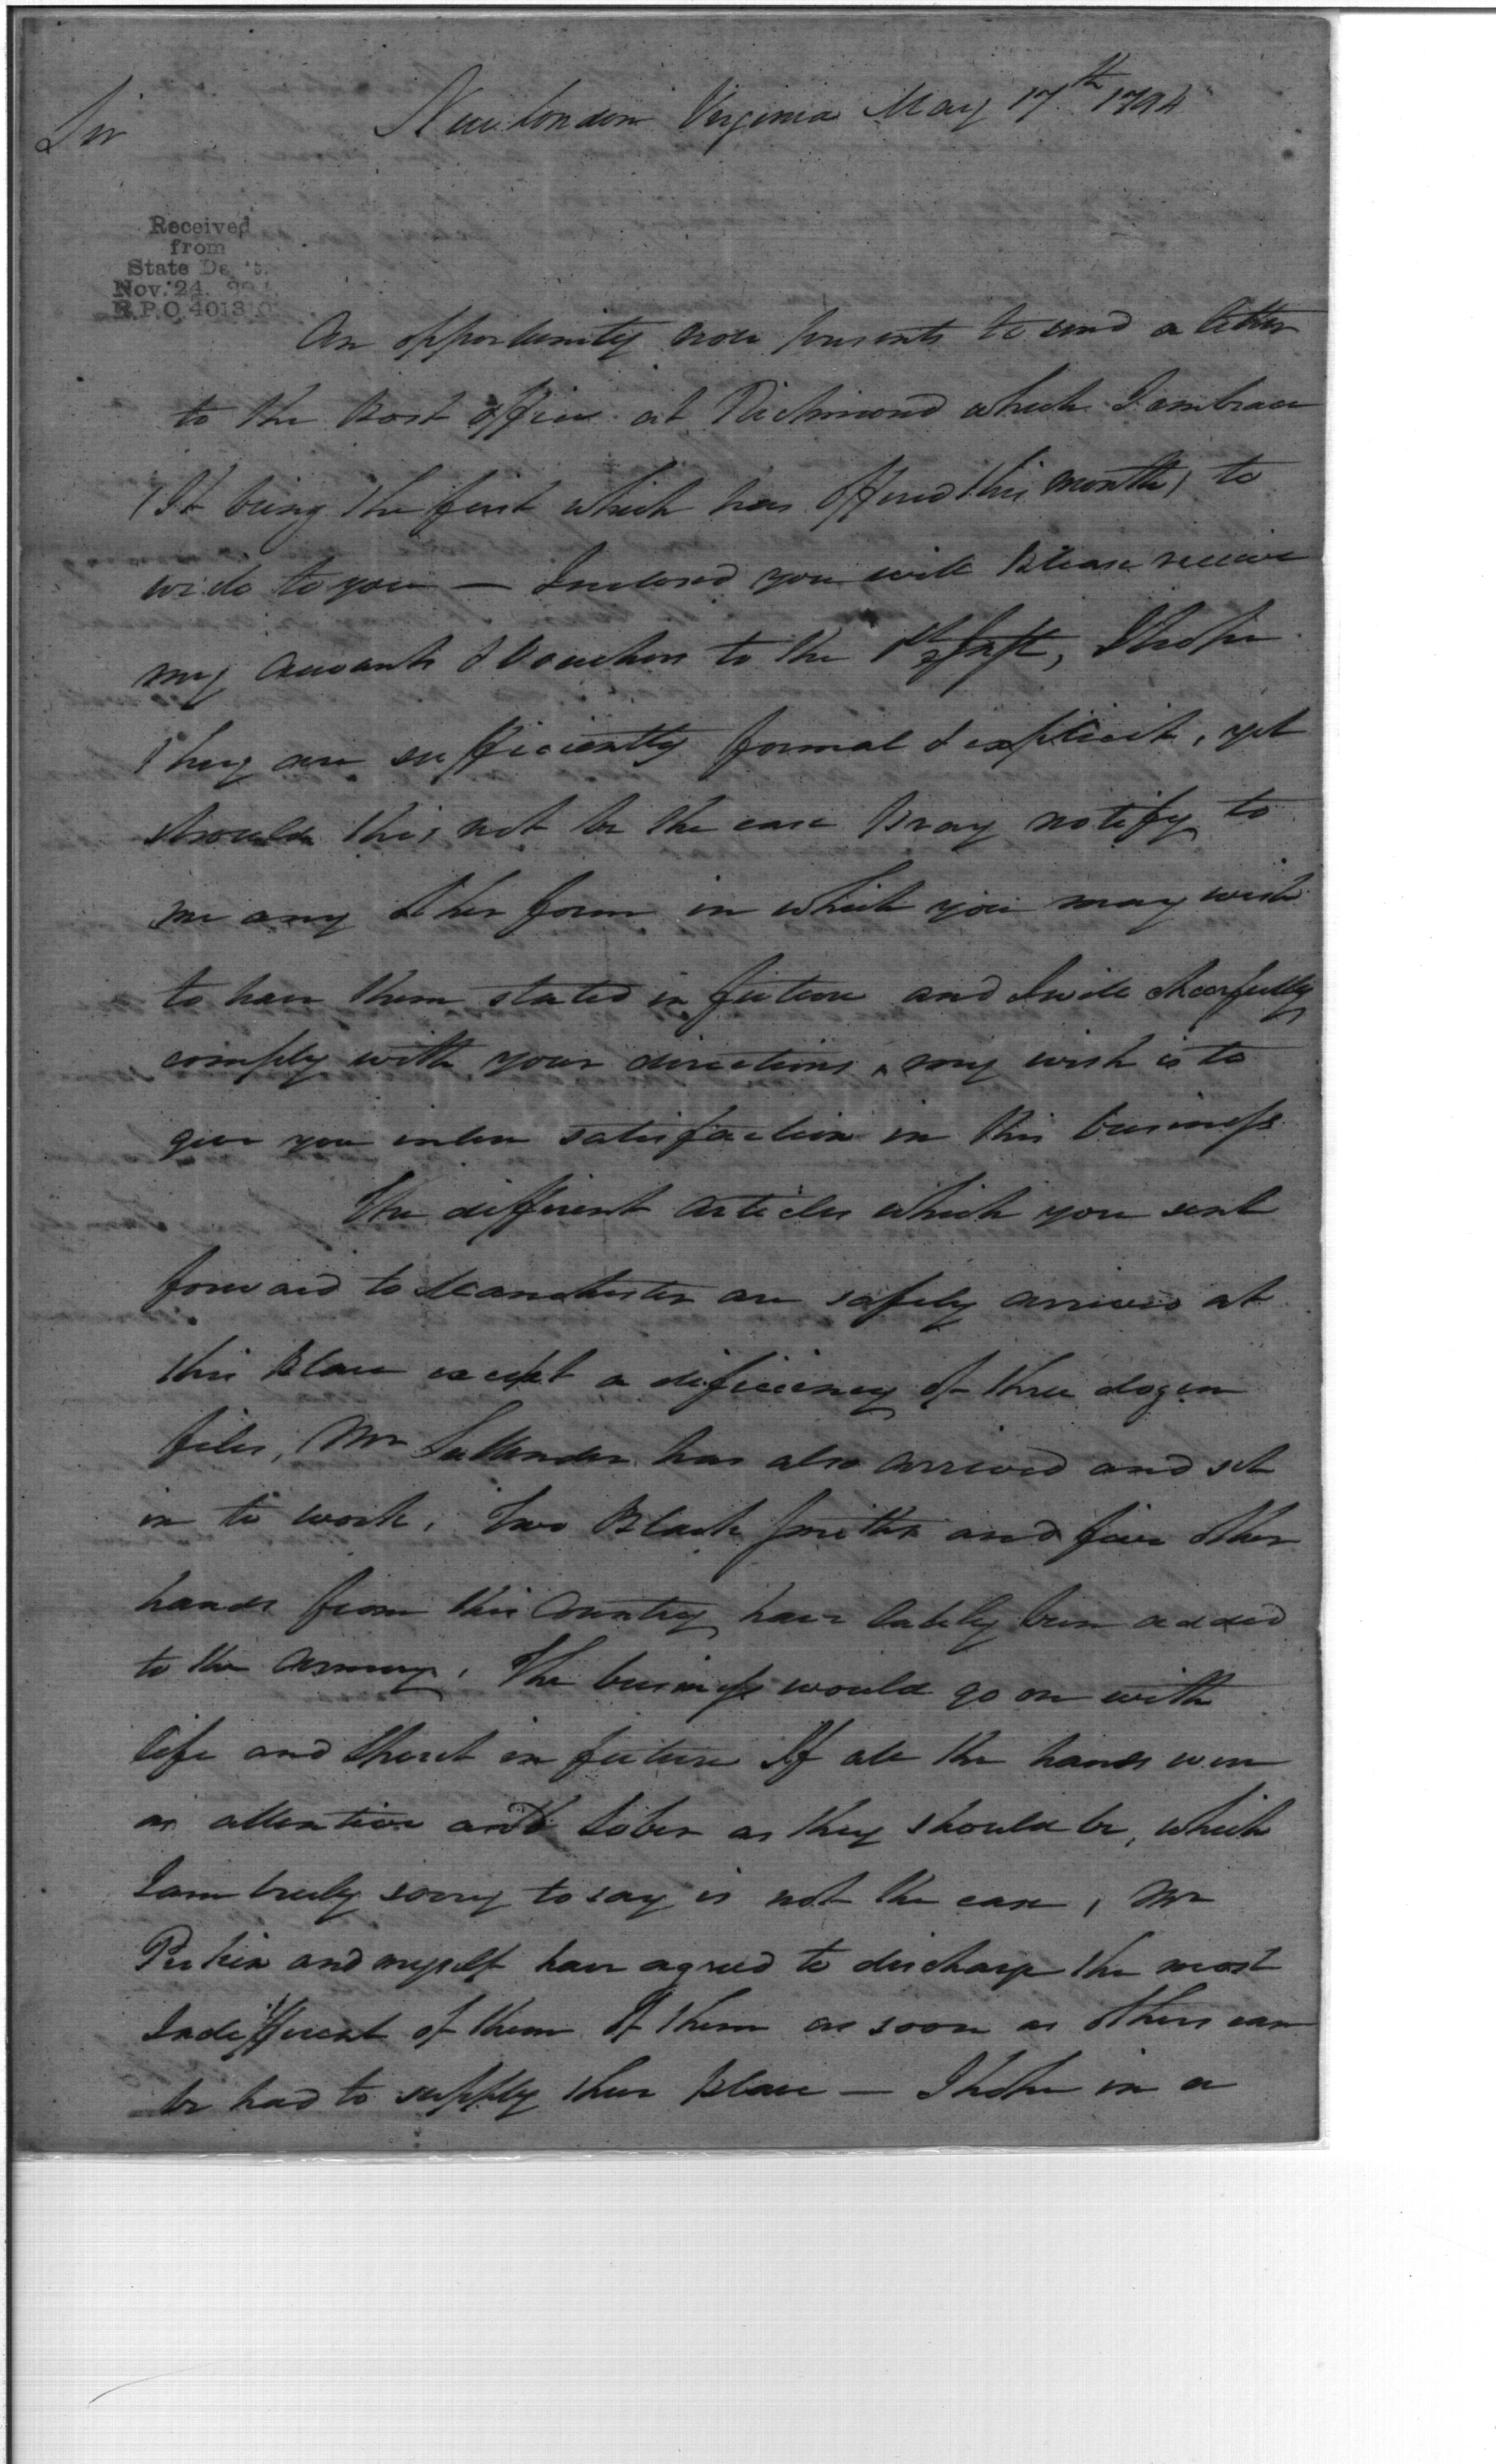 Sir
New London Virginia May 17th 1794
Received
from
State Dept.
Nov. 24.
R.P.O. 401310
An opportunity now presents to send a letter
to the Post office at Richmond which I embrace
(It being the first which has offered this month) to
write to you — Inclosed you will Please receive
my accounts & Vouchers to the I hope
they are sufficiently formal & explicit, yet
should this not be the case Pray notify to
me any other form in which you may wish
to have them stated in future and I will chearfully
comply with your directions, my wish is to
give you intire satisfaction in this business
The different articles which you sent
forward to Manchester are safely arrived at
this Place except a deficiency of three dozen
files, Mr has also arrived and set
in to work. Two Black smiths and five other
hands from this Country have lately been added
to the Armory. The business would go on with
life and spirit in future If all the hands were
as attentive and sober as they should be, which
I am truly sorry to say is not the case, Mr
Perkin and myself have agreed to discharge the most
Indifferent of them of them as soon as others can
be had to supply their place — I hope in a